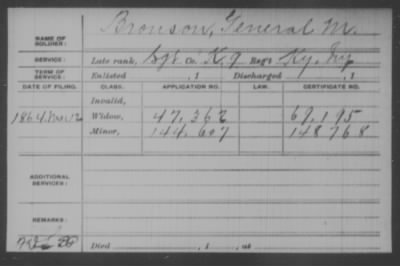 Bronson, General M.
NAME OF SOLDIER:
SERVICE: Late rank, Sgt Co. K, 9 Reg't Ky. Inf
TERM OF SERVICE: Enlisted , 1 Discharged , 1
DATE OF FILING. CLASS. APPLICATION NO. LAW. CERTIFICATE NO.
Invalid,
1864 Mar 12 Widow, 47,362 69,195
Minor, 144,607 148768
ADDITIONAL SERVICES:
REMARKS:
Died , 1 , at